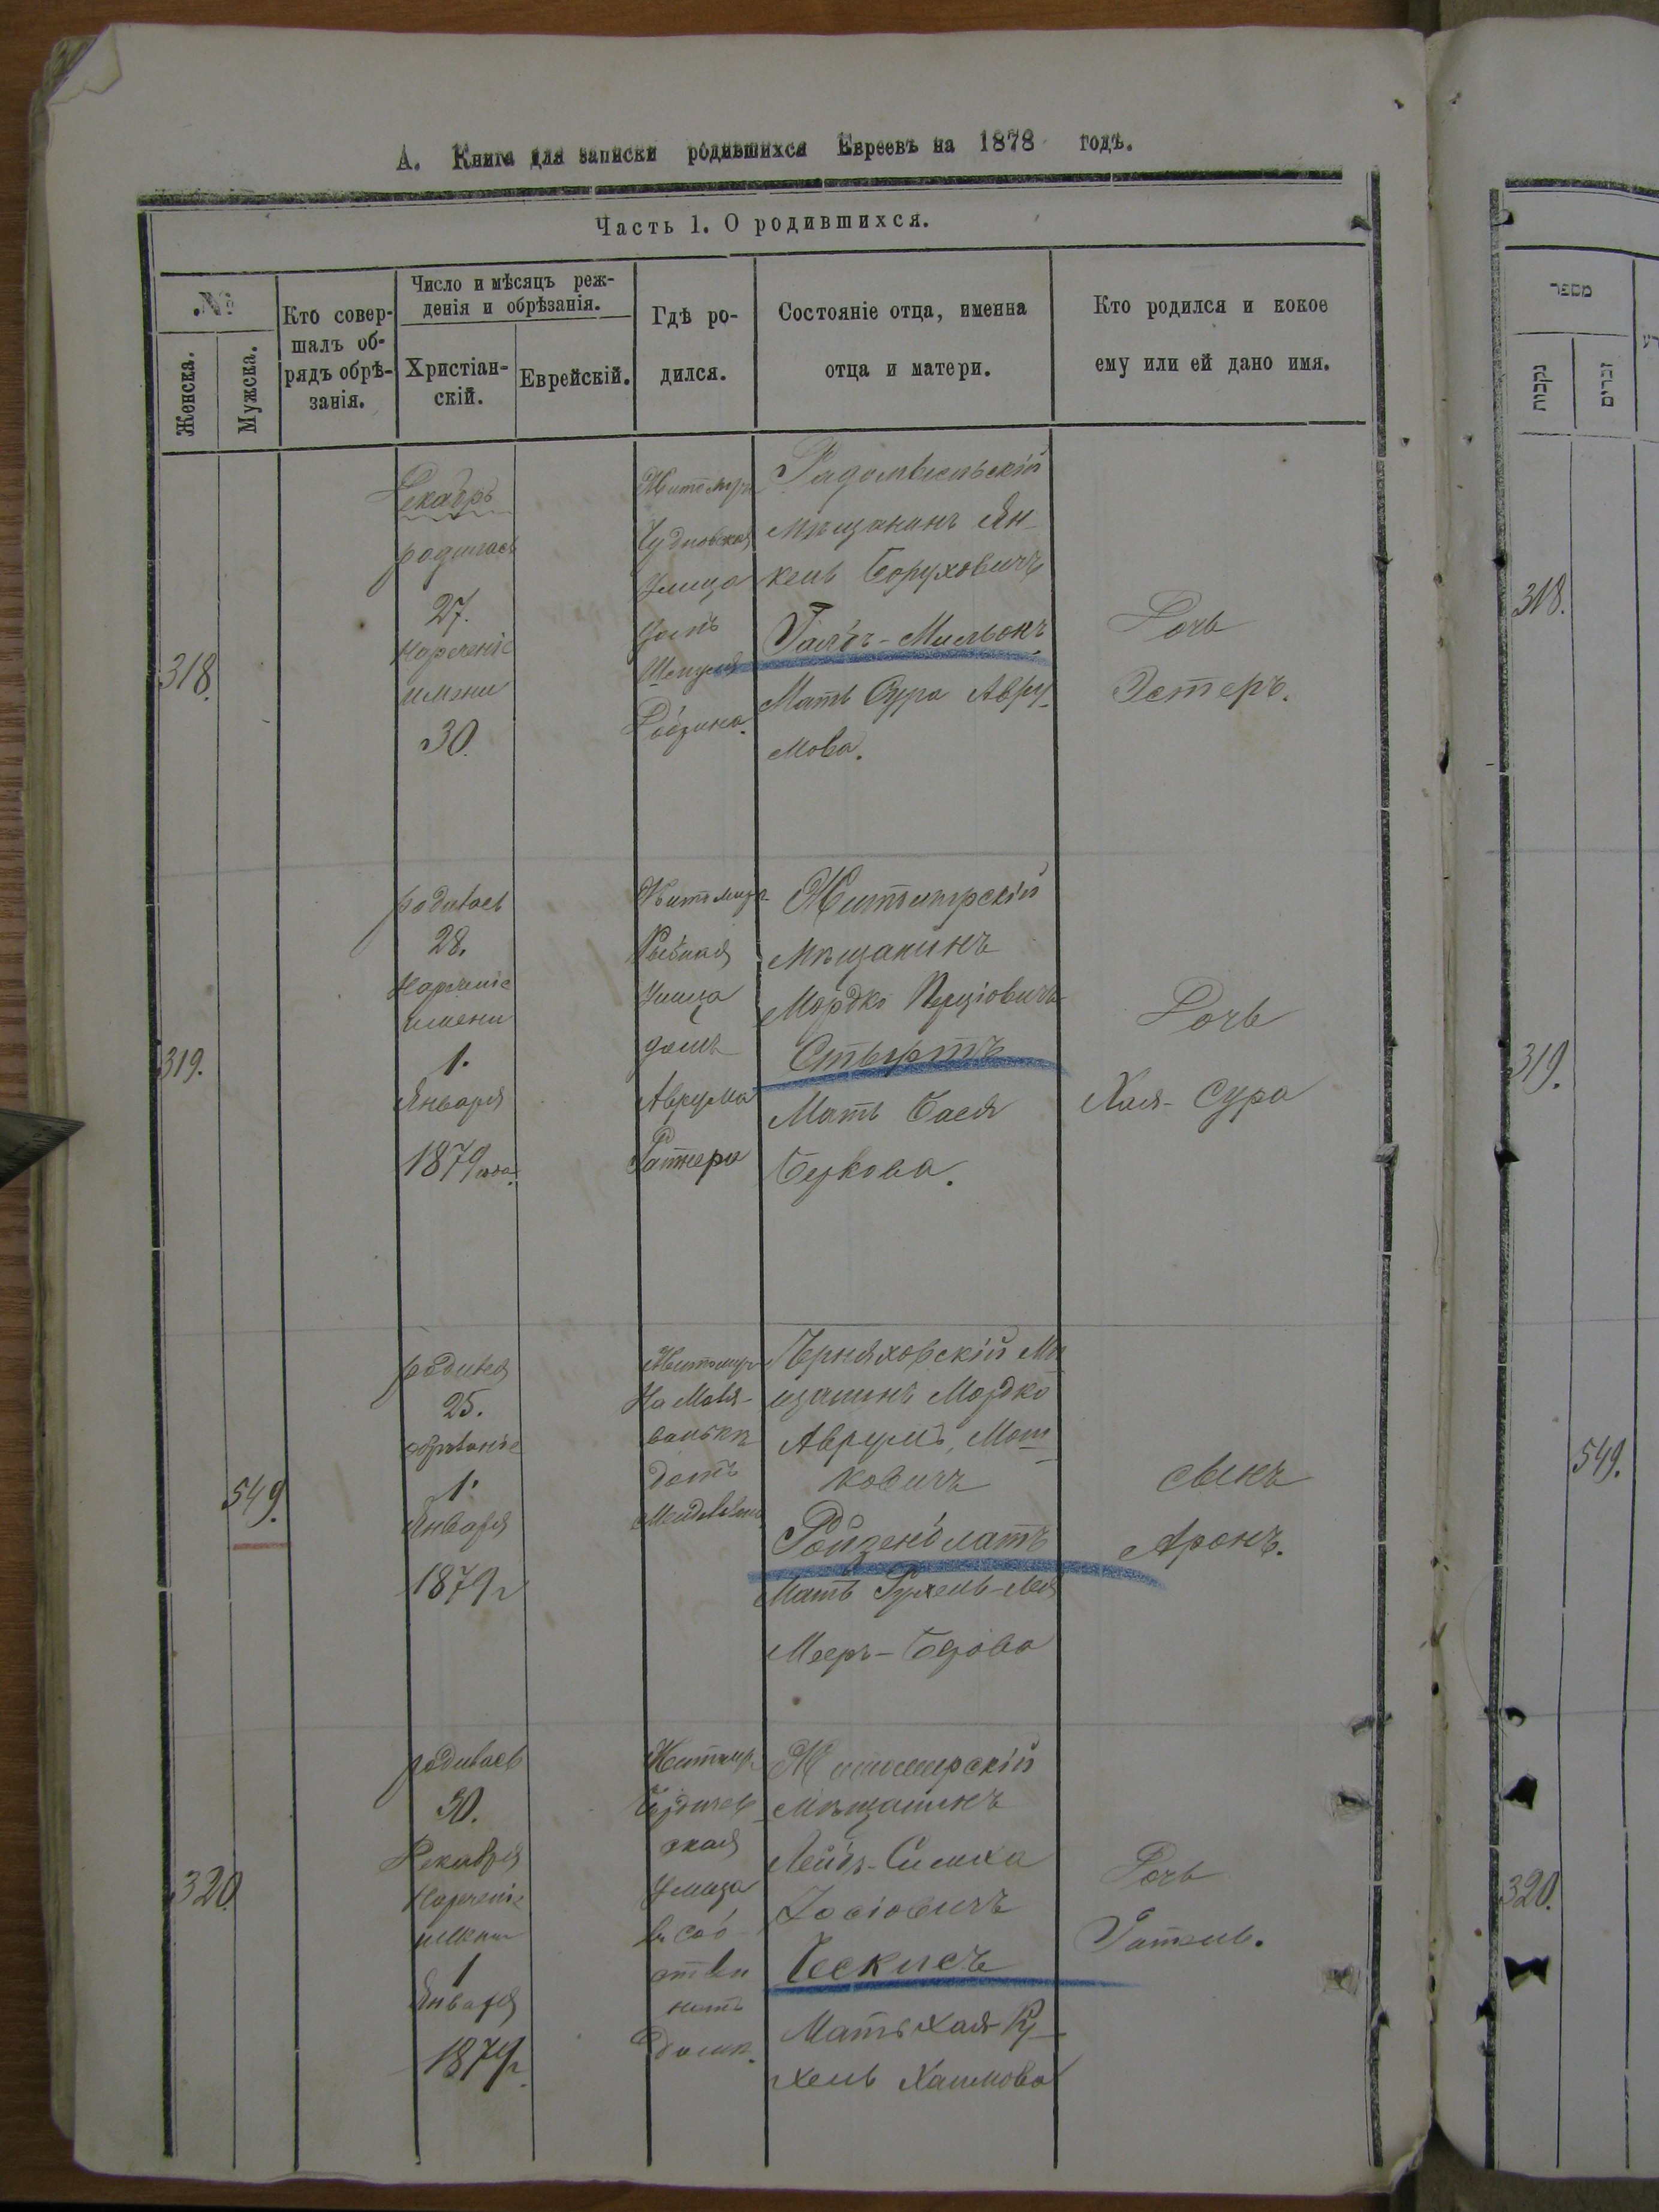 А. Книга для записки родившихся Евреевъ на 1878 годъ.
Часть 1. О родившихся.
№
Женска.
Мужска.
Кто совер-
шалъ об-
рядъ обрѣ-
занія.
Число и мѣсяцъ реж-
денія и обрѣзанія.
Христіан-
скій.
Еврейскій.
Гдѣ ро-
дился.
Состояніе отца, именна
отца и матери.
Кто родился и кокое
ему или ей дано имя.
318.
Декабрь
родилась
27.
Нареченіе
имени
30.
Житомръ
Чудновская
улица
домъ
Шмуля
Радомысльскій
мѣщанинъ Ян-
кель Боруховичъ
Мать Сура Авру-
мова.
Дочь
Эстеръ.
319.
родилась
28.
Нареченіе
имени
1.
Января
1879 года.
Житомиръ
Рыбная
улица
домъ
Аврума
Ратнера
Житомирскій
Мѣщанинъ
Мордко
Мать Бася
Беркова.
Дочь
Хая-Сура
549.
родился
25.
обрѣзаніе
1.
Января
1879 г
Житомиръ
На Маля-
ванькѣ
домъ
Черняховскій Мѣ
щанинъ Мордко
Аврумъ, Мош-
ковичъ
Ройзенблатъ
Мать Рухель-Лея
Мееръ-
сынъ
Аронъ.
320.
родилась
30.
Декабря
Нареченіе
имени
1
Января
1879 г.
Житомиръ
Бердичев
ская
улица
въ соб-
ствен
номъ
домѣ.
Житомирскій
мѣщанинъ
Лейбъ-Симха
Іосіовичъ
Мать Хая-Ру-
хель Хаимова
Дочь
מספר
נקבות
זכרים
318.
319.
549.
320.